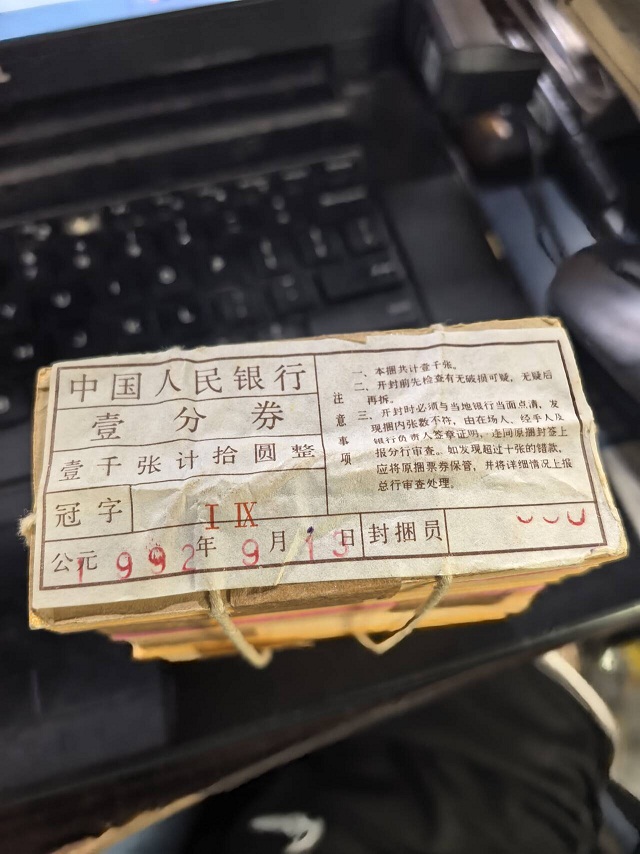 中国人民银行
壹分券
壹千张计拾圆整
冠字 I IX
公元1992年9月13日 封捆员
注意事项
一、本捆共计壹千张。
二、开封前先检查有无破损可疑，无疑后
再拆。
三、开封时必须与当地银行当面点清，发
现捆内张数不符，由在场人、经手人及
银行负责人签章证明，连同原捆封签上
报分行审查。如发现超过十张的错款，
应将原捆票券保管，并将详细情况上报
总行审查处理。